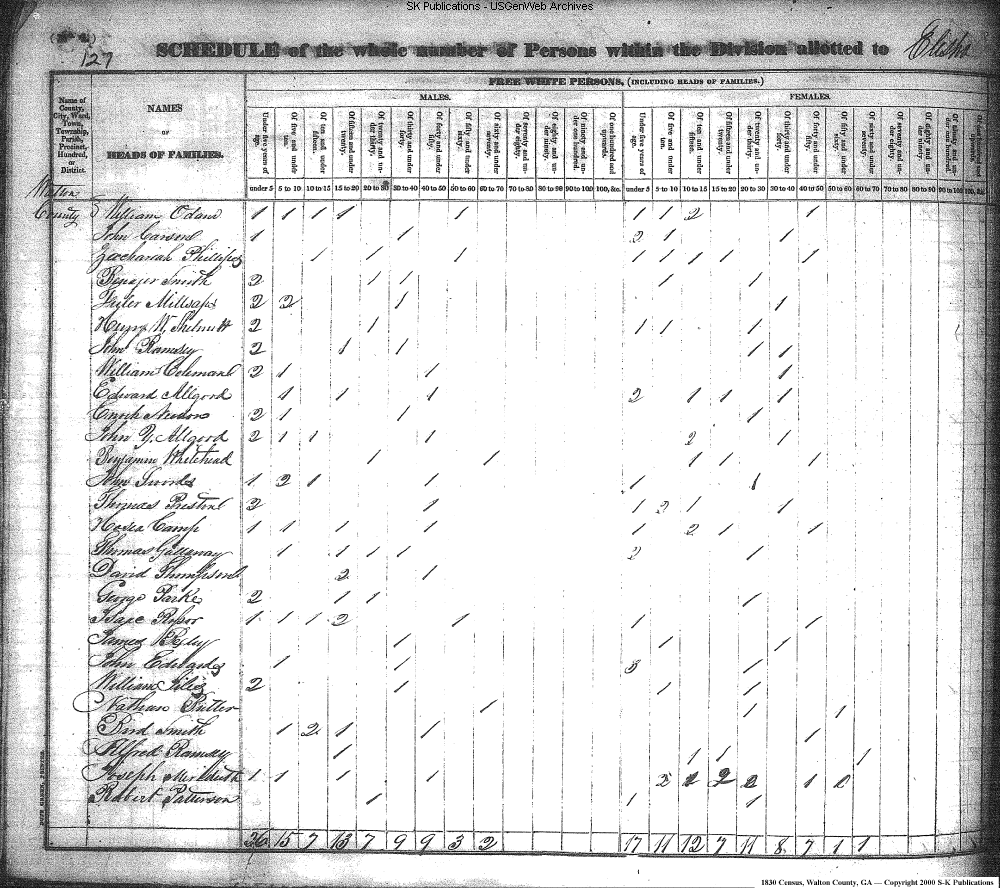 SK Publications - USGenWeb Archives
127
SCHEDULE of the whole number of Persons within the Division allotted to Elisha
FREE WHITE PERSONS, (INCLUDING HEADS OF FAMILIES.)
MALES. FEMALES.
Name of County, City, Ward, Town, Township, Parish, Precinct, Hundred, or District.
NAMES
OR
HEADS OF FAMILIES.
Under five years of age. Of five and under ten. Of ten and under fifteen. Of fifteen and under twenty. Of twenty and under thirty. Of thirty and under forty. Of forty and under fifty. Of fifty and under sixty. Of sixty and under seventy. Of seventy and under eighty. Of eighty and under ninety. Of ninety and under one hundred. Of one hundred and upwards. Under five years of age. Of five and under ten. Of ten and under fifteen. Of fifteen and under twenty. Of twenty and under thirty. Of thirty and under forty. Of forty and under fifty. Of fifty and under sixty. Of sixty and under seventy. Of seventy and under eighty. Of eighty and under ninety. Of ninety and under one hundred.
under 5 5 to 10 10 to 15 15 to 20 20 to 30 30 to 40 40 to 50 50 to 60 60 to 70 70 to 80 80 to 90 90 to 100 100, &c. under 5 5 to 10 10 to 15 15 to 20 20 to 30 30 to 40 40 to 50 50 to 60 60 to 70 70 to 80 80 to 90 90 to 100 100, &c
Walton
County William Odam 1 1 1 1 1 1 1 2 1
John Carson 1 1 2 1 1
Zachariah Phillips 1 1 1 1 1 1 1 1
Smith 2 1 1 1 1
Millsaps 2 2 1 1
Henry W. 2 1 1 1 1
John Ramsey 2 1 1 1 1
William Coleman 2 1 1 1
Edward Allgood 1 1 1 2 1 1 1
Enoch 2 1 1 1
John Y. Allgood 2 1 1 1 2 1
Benjamin Whitehead 1 1 1 1 1
John 1 2 1 1 1 1
Thomas 2 1 1 2 1 1
Hosea Camp 1 1 1 1 1 2 1 1
Thomas Gallaway 1 1 1 1 2 1
David Thompson 2 1
George Parke 2 1 1 1
Isaac 1 1 1 2 1 1 1
James 1 1 1
John Edwards 1 1 3 1
William 2 1 1 1
Nathan 1 1 1
Bird Smith 1 2 1 1 1
Alfred Ramsey 1 1 1 1
Joseph Meredith 1 1 1 1 2 1 2 2 1 1
Robert Patterson 1 1 1
26 15 7 13 7 9 9 3 2 17 11 12 7 11 8 7 1 1
1830 Census, Walton County, GA — Copyright 2000 S-K Publications